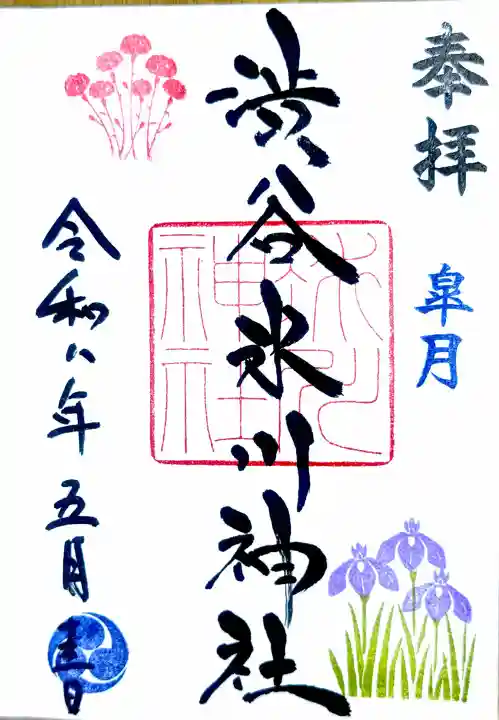 奉拝
皐月
渋谷氷川神社
氷川神社
令和八年五月吉日